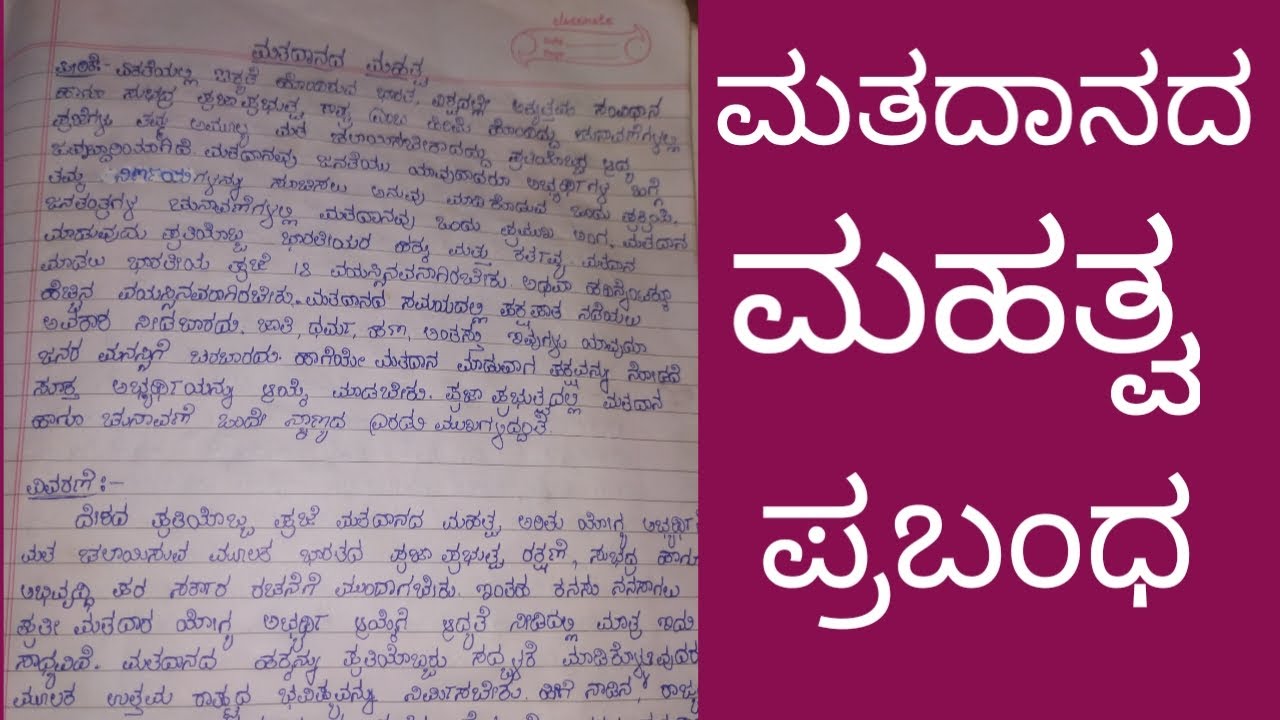 classmate
Date
Page
ಮತದಾನದ ಮಹತ್ವ
ಪೀಠಿಕೆ:- ವಿವಿಧತೆಯಲ್ಲಿ ಐಕ್ಯತೆ ಹೊಂದಿರುವ ಭಾರತ, ವಿಶ್ವದಲ್ಲೇ ಅತ್ಯುತ್ತಮ ಸಂವಿಧಾನ
ಹಾಗೂ ಸುಭದ್ರ ಪ್ರಜಾಪ್ರಭುತ್ವ ರಾಷ್ಟ್ರ ಎಂಬ ಹಿರಿಮೆ ಹೊಂದಿದ್ದು ಚುನಾವಣೆಗಳಲ್ಲಿ
ಪ್ರಜೆಗಳು ತಮ್ಮ ಅಮೂಲ್ಯ ಮತ ಚಲಾಯಿಸಬೇಕಾದದ್ದು ಪ್ರತಿಯೊಬ್ಬರ ಆದ್ಯ
ಜವಾಬ್ದಾರಿಯಾಗಿದೆ. ಮತದಾನವು ಜನತೆಯು ಯಾವುದಾದರೂ ಅಭ್ಯರ್ಥಿಗಳ ಬಗ್ಗೆ
ತಮ್ಮ ನಿರ್ಣಯಗಳನ್ನು ಸೂಚಿಸಲು ಅನುವು ಮಾಡಿಕೊಡುವ ಒಂದು ಪ್ರಕ್ರಿಯೆ.
ಜನತಂತ್ರಗಳ ಚುನಾವಣೆಗಳಲ್ಲಿ ಮತದಾನವು ಒಂದು ಪ್ರಮುಖ ಅಂಗ. ಮತದಾನ
ಮಾಡುವುದು ಪ್ರತಿಯೊಬ್ಬ ಭಾರತೀಯರ ಹಕ್ಕು ಮತ್ತು ಕರ್ತವ್ಯ. ಮತದಾನ
ಮಾಡಲು ಭಾರತೀಯ ಪ್ರಜೆ 18 ವಯಸ್ಸಿನವನಾಗಿರಬೇಕು. ಅಥವಾ ಹದಿನೆಂಟಕ್ಕೂ
ಹೆಚ್ಚಿನ ವಯಸ್ಸಿನವರಾಗಿರಬೇಕು. ಮತದಾನದ ಸಮಯದಲ್ಲಿ ಪಕ್ಷಪಾತ ನಡೆಯಲು
ಅವಕಾಶ ನೀಡಬಾರದು. ಜಾತಿ, ಧರ್ಮ, ಹಣ, ಅಂತಸ್ತು ಇವುಗಳು ಯಾವುದೂ
ಜನರ ಮನಸ್ಸಿಗೆ ಬರಬಾರದು. ಹಾಗೆಯೇ ಮತದಾನ ಮಾಡುವಾಗ ಪಕ್ಷವನ್ನು ನೋಡದೆ
ಸೂಕ್ತ ಅಭ್ಯರ್ಥಿಯನ್ನು ಆಯ್ಕೆ ಮಾಡಬೇಕು. ಪ್ರಜಾಪ್ರಭುತ್ವದಲ್ಲಿ ಮತದಾನ
ಹಾಗೂ ಚುನಾವಣೆ ಒಂದೇ ನಾಣ್ಯದ ಎರಡು ಮುಖಗಳಿದ್ದಂತೆ.
ವಿವರಣೆ:-
ದೇಶದ ಪ್ರತಿಯೊಬ್ಬ ಪ್ರಜೆ ಮತದಾನದ ಮಹತ್ವ ಅರಿತು ಯೋಗ್ಯ ಅಭ್ಯರ್ಥಿಗೆ
ಮತ ಚಲಾಯಿಸುವ ಮೂಲಕ ಭಾರತದ ಪ್ರಜಾಪ್ರಭುತ್ವ ರಕ್ಷಣೆ, ಸುಭದ್ರ ಹಾಗೂ
ಅಭಿವೃದ್ಧಿ ಪರ ಸರ್ಕಾರ ರಚನೆಗೆ ಮುಂದಾಗಬೇಕು. ಇಂತಹ ಕನಸು ನನಸಾಗಲು
ಪ್ರತೀ ಮತದಾರ ಯೋಗ್ಯ ಅಭ್ಯರ್ಥಿ ಆಯ್ಕೆಗೆ ಆದ್ಯತೆ ನೀಡಿದಲ್ಲಿ ಮಾತ್ರ ಇದು
ಸಾಧ್ಯವಿದೆ. ಮತದಾನದ ಹಕ್ಕನ್ನು ಪ್ರತಿಯೊಬ್ಬರು ಸದ್ಬಳಕೆ ಮಾಡಿಕೊಳ್ಳುವುದರ
ಮೂಲಕ ಉತ್ತಮ ರಾಷ್ಟ್ರದ ಭವಿಷ್ಯವನ್ನು ನಿರ್ಮಿಸಬೇಕು. ಹೀಗೆ ನಾಡಿನ, ರಾಜ್ಯ
ಮತದಾನದ
ಮಹತ್ವ
ಪ್ರಬಂಧ